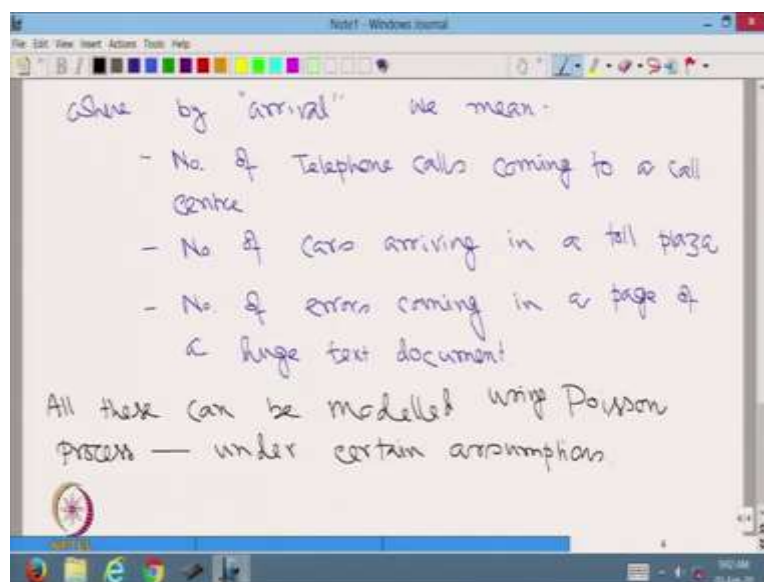 Note1 - Windows Journal
File Edit View Insert Actions Tools Help
where by "arrival" we mean -
- No. of Telephone calls coming to a call
centre
- No of cars arriving in a toll plaza
- No. of errors coming in a page of
a huge text document
All these can be modelled using Poisson
process — under certain assumptions
NPTEL